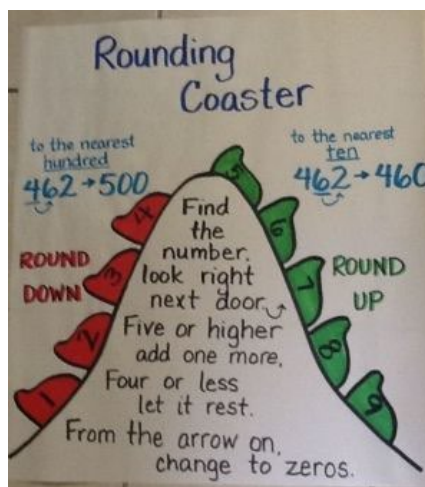 Rounding
Coaster
to the nearest
hundred
462→500
to the nearest
ten
462→460
ROUND
DOWN
1
2
3
4
5
6
7
8
9
ROUND
UP
Find
the
number.
look right
next door
Five or higher
add one more.
Four or less
let it rest.
From the arrow on,
change to zeros.